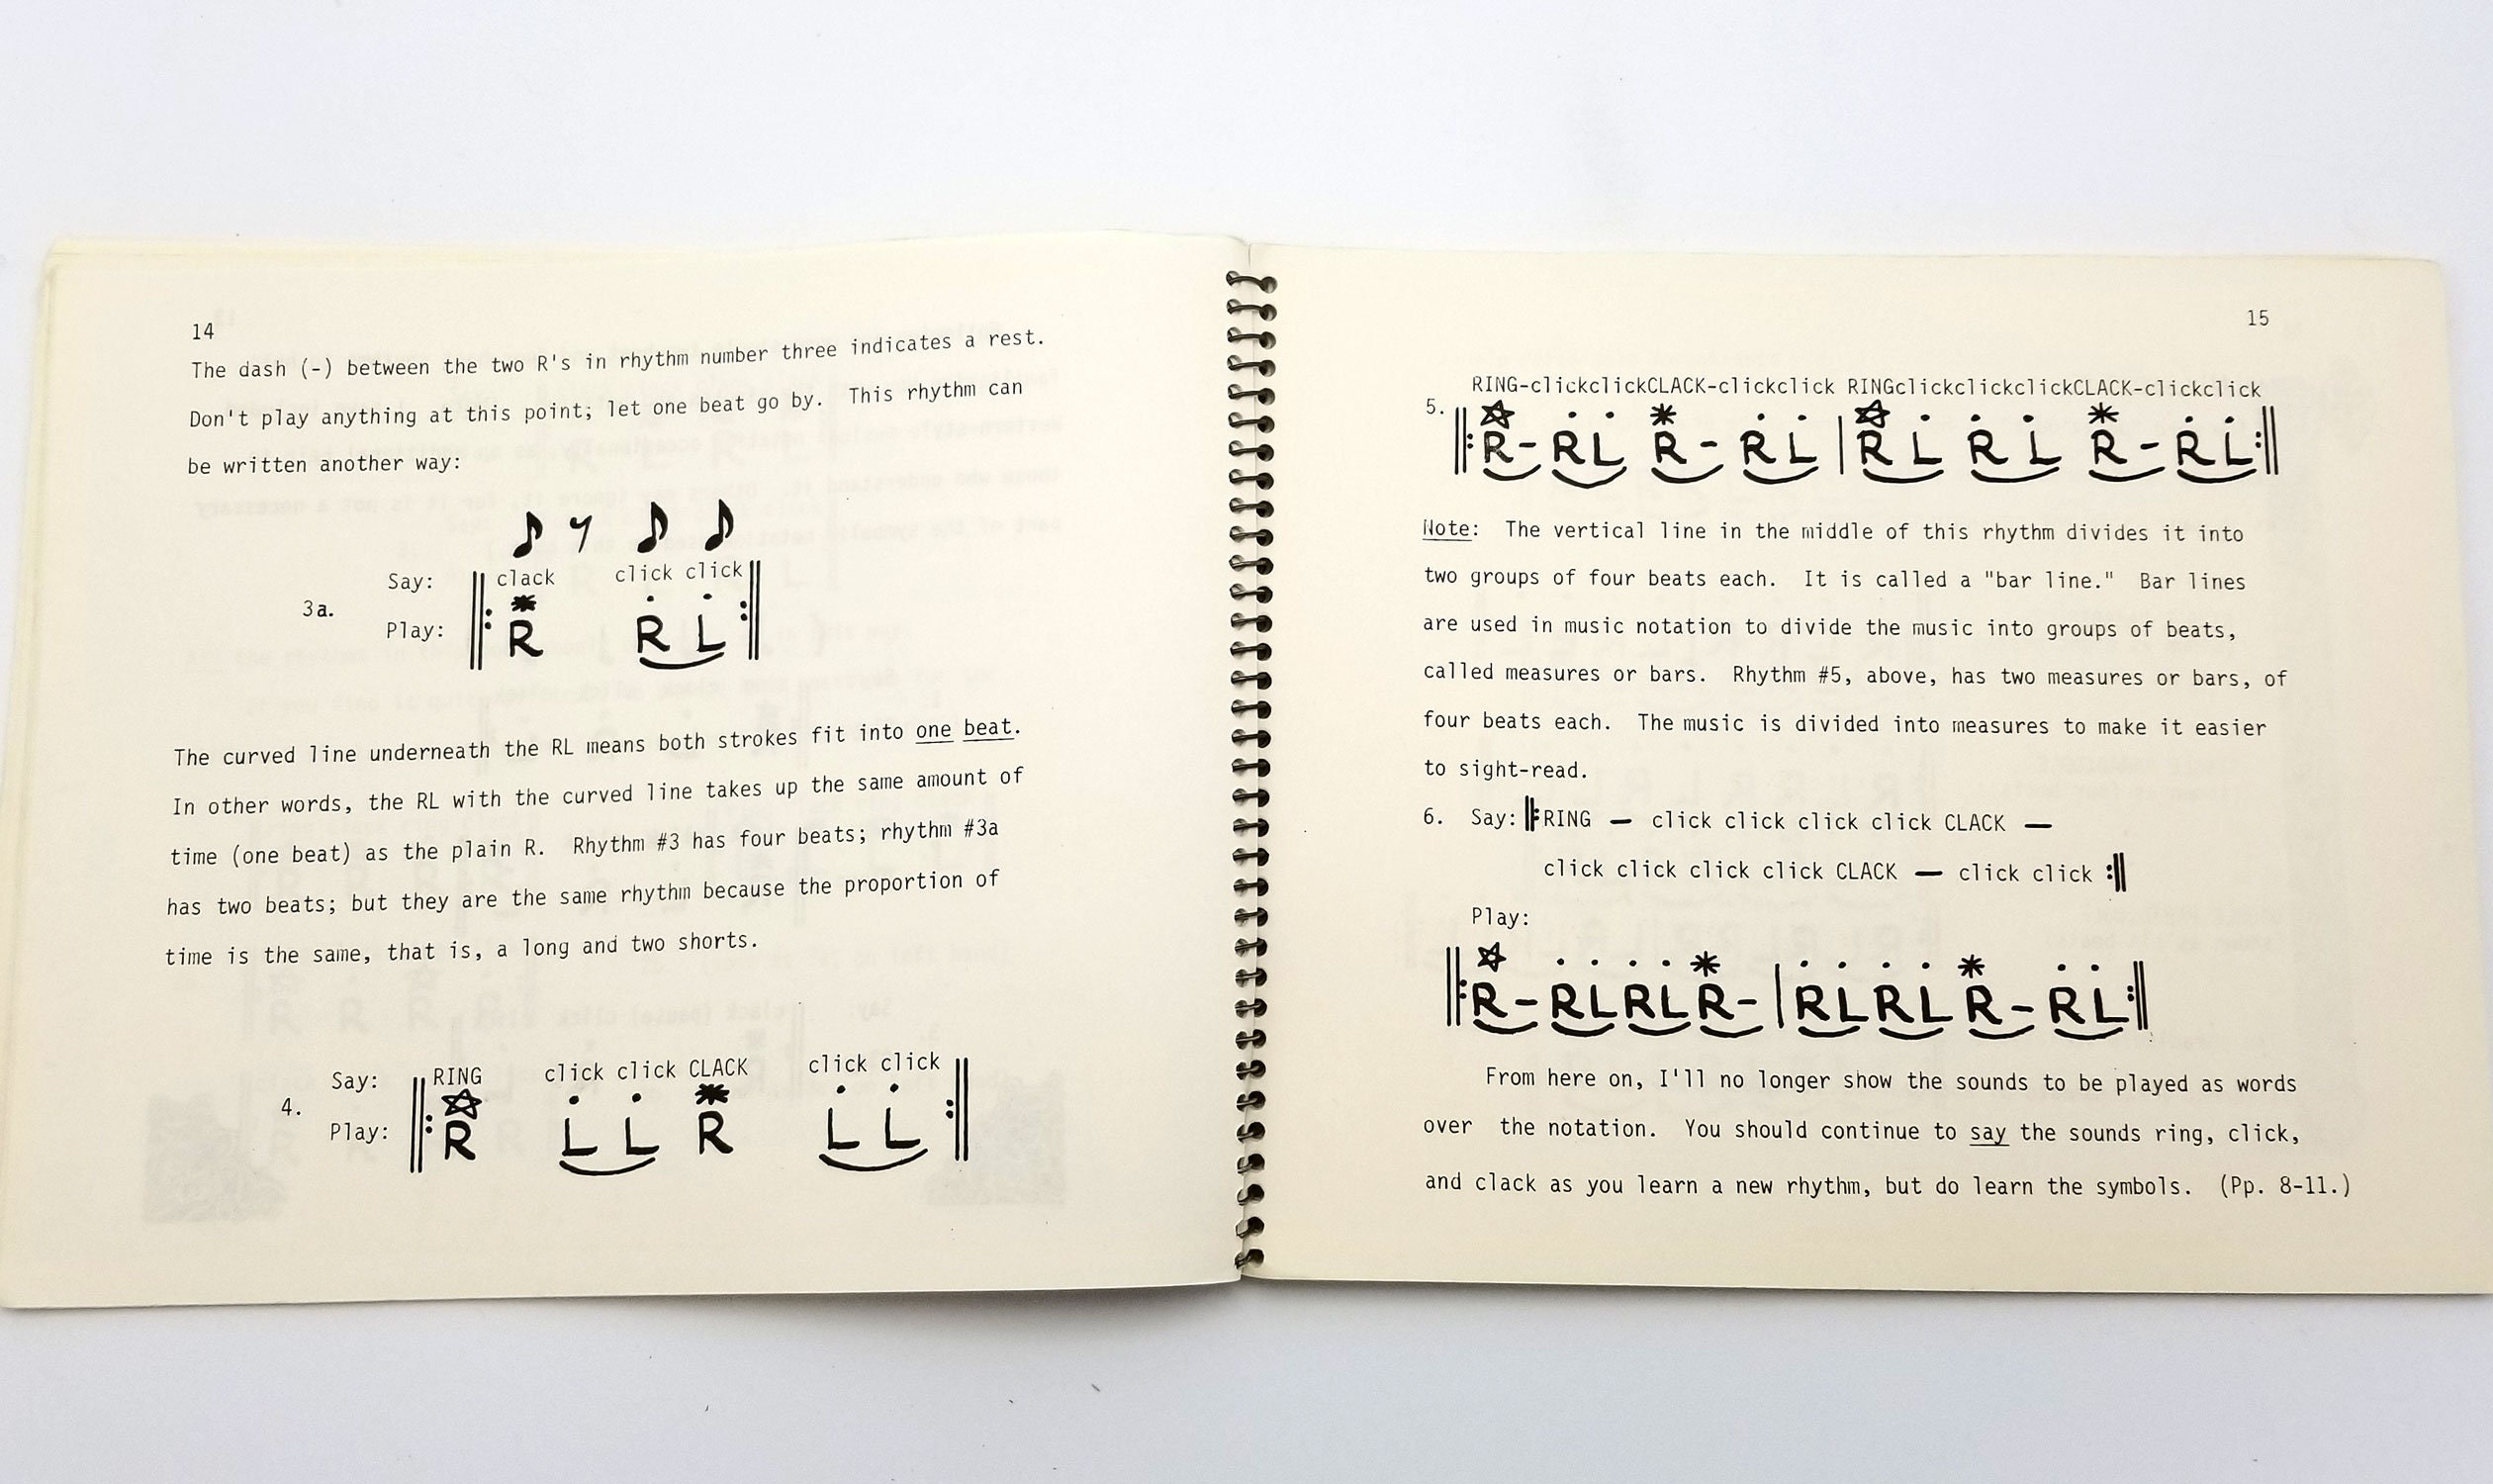 14
The dash (-) between the two R's in rhythm number three indicates a rest.
Don't play anything at this point; let one beat go by.  This rhythm can
be written another way:
Say: clack click click
3a.
Play: R R L
The curved line underneath the RL means both strokes fit into one beat.
In other words, the RL with the curved line takes up the same amount of
time (one beat) as the plain R.  Rhythm #3 has four beats; rhythm #3a
has two beats; but they are the same rhythm because the proportion of
time is the same, that is, a long and two shorts.
Say: RING click click CLACK click click
4.
Play: R L L R L L
15
RING-clickclickCLACK-clickclick RINGclickclickclickCLACK-clickclick
5.
R - R L R - R L | R L R L R - R L
Note:  The vertical line in the middle of this rhythm divides it into
two groups of four beats each.  It is called a "bar line."  Bar lines
are used in music notation to divide the music into groups of beats,
called measures or bars.  Rhythm #5, above, has two measures or bars, of
four beats each.  The music is divided into measures to make it easier
to sight-read.
6. Say: RING — click click click click CLACK —
click click click click CLACK — click click
Play:
R - R L R L R - | R L R L R - R L
From here on, I'll no longer show the sounds to be played as words
over  the notation.  You should continue to say the sounds ring, click,
and clack as you learn a new rhythm, but do learn the symbols.  (Pp. 8-11.)